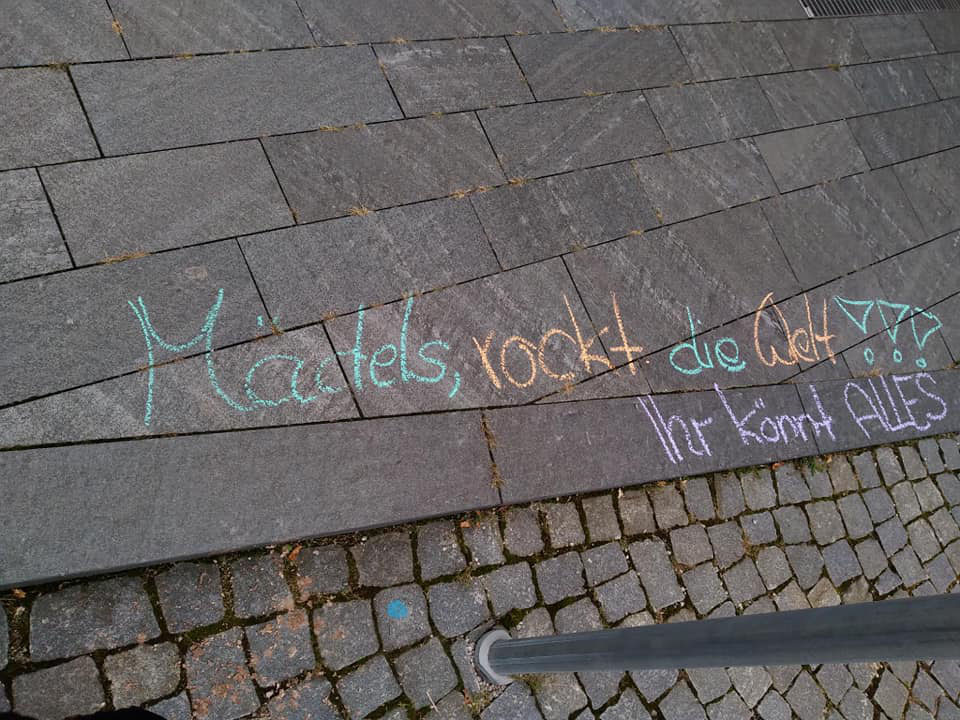 Mädels, rockt die Welt!!!
Ihr könnt ALLES.